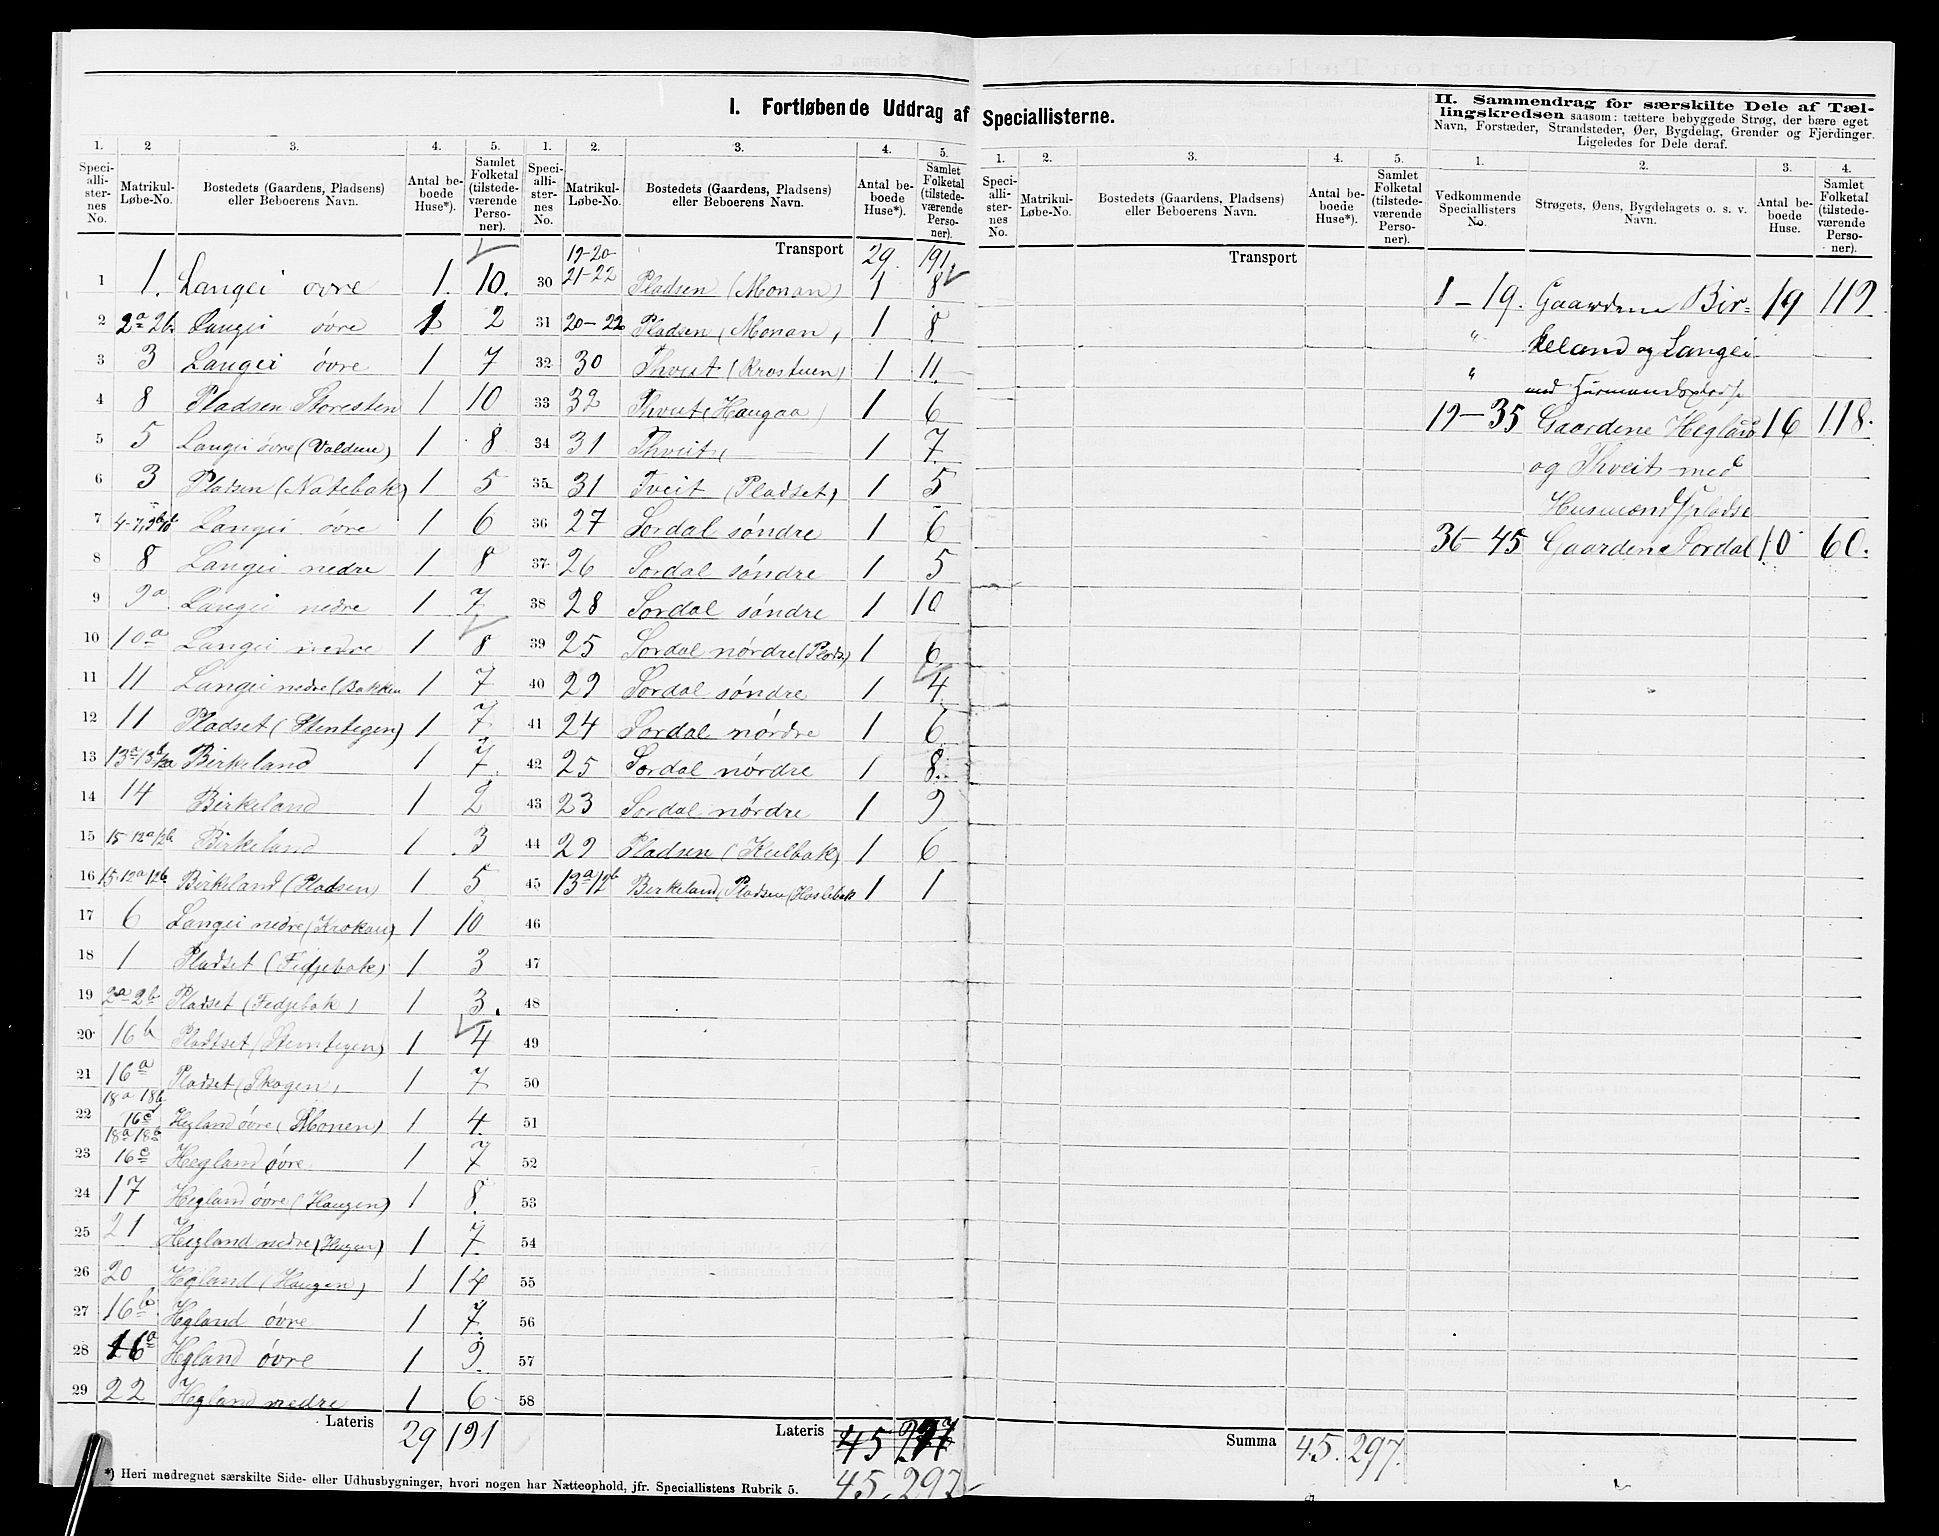 I. Fortløbende Uddrag af Speciallisterne.
II. Sammendrag for særskilte Dele af Tæl-
lingskredsen saasom: tættere bebyggede Strøg, der bære eget
Navn, Forstæder, Strandsteder, Øer, Bygdelag, Grender og Fjerdinger.
Ligeledes for Dele deraf.
1. 2 3. 4. 5. 1. 2. 3. 4. 5. 1. 2. 3. 4. 5. 1. 2. 3. 4.
Speciallisternes No. Matrikul-Løbe-No. Bostedets (Gaardens, Pladsens) eller Beboerens Navn. Antal beboede Huse*). Samlet Folketal (tilstedeværende Personer).
Speciallisternes No. Matrikul-Løbe-No. Bostedets (Gaardens, Pladsens) eller Beboerens Navn. Antal beboede Huse*). Samlet Folketal (tilstedeværende Personer).
Speciallisternes No. Matrikul-Løbe-No. Bostedets (Gaardens, Pladsens) eller Beboerens Navn. Antal beboede Huse*). Samlet Folketal (tilstedeværende Personer).
Vedkommende Speciallisters No. Strøgets, Øens, Bygdelagets o. s. v. Navn. Antal beboede Huse. Samlet Folketal (tilstedeværende Personer).
1 1. Langei øvre 1. 10.
2 2a 2b. Langei øvre 1 2
3 3 Langei øvre 1 7
4 8 Pladsen Storesten 1 10
5 5 Langei øvre (Valdene) 1 8
6 3 Pladsen (Natebak) 1 5
7 Langei øvre 1 6
8 8 Langei nedre 1 8
9 9a Langei nedre 1 7
10 10a Langei nedre 1 8
11 11 Langei nedre (Bakken 1 7
12 11 Pladset (Stentegen) 1 7
13 Birkeland 1 7
14 14 Birkeland 1 2
15 15 12a 12b Birkeland 1 3
16 15. 12a 12b. Birkeland (Pladsen) 1 5
17 6 Langei nedre (Krokan) 1 10
18 1 Pladset (Fidjebak) 1 3
19 2a 2b Pladset (Fedjebak) 1 3.
20 16b Pladtset (Stentegen) 1 4
21 16a Pladset (Skogen) 1 7
22 18a 18b 16c Hegland øvre (Monen) 1 4.
23 18a 18b 16c Hegland øvre 1 7
24 17 Hegland øvre (Haugen) 1 8.
25 21 Hegland nedre (Haugen) 1 7.
26 20 Hegland (Haugen) 1 14
27 16b Hegland øvre 1 7.
28 16a Hegland øvre 1 9.
29 22 Hegland nedre 1 6
Lateris 29 191
Transport 29. 191.
30 19-20 21-22 Pladsen (Monan) 1 8
31 20-22 Pladsen (Monan) 1 8
32 30 Thveit (Krostuen) 1 11.
33 32 Thveit (Haugaa) 1 6
34 31 Thveit 1 7.
35 31 Tveit (Pladset) 1 5
36 27 Sordal søndre 1 6
37 26 Sordal søndre 1 5
38 28 Sordal søndre 1 10
39 25 Sordal nørdre (Plads) 1 6.
40 29 Sordal søndre 1 4.
41 24 Sordal nørdre 1 6.
42 25 Sordal nørdre 1 8.
43 23 Sordal nørdre 1 9
44 29 Pladsen (Kulbak) 1 6
45 13a 12b Birkeland Pladsen (Haslebak 1 1
46
47
48
49
50
51
52
53
54
55
56
57
58
Lateris 45
45. 297
Transport
Summa 45. 297.
1-19. Gaardene Bir= 19 119
" keland og Langei
" med Husmandspladse
19-35 Gaardene Hegland 16 118.
og Thveit med
Husmandspladse
36-45 Gaardene Sordal 10 60.
*) Heri medregnet særskilte Side- eller Udhusbygninger, hvori nogen har Natteophold, jfr. Speciallistens Rubrik 5.